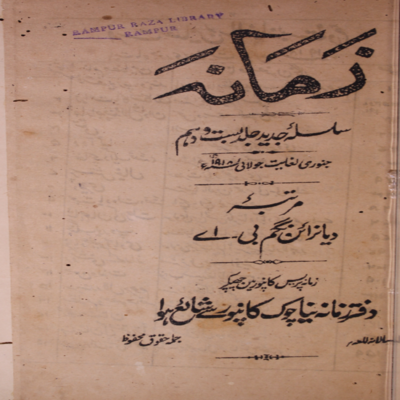 RAMPUR RAZA LIBRARY
RAMPUR
زمانہ
سلسلۂ جدید جلد بست و دہم
جنوری لغایت جولائی ۱۹۱۸ء
مرتبۂ
دیا نرائن نگم بی۔ اے
زمانہ پریس کانپور میں چھپکے
دفتر زمانہ نیا چوک کانپور سے شائع ہوا
جملہ حقوق محفوظ